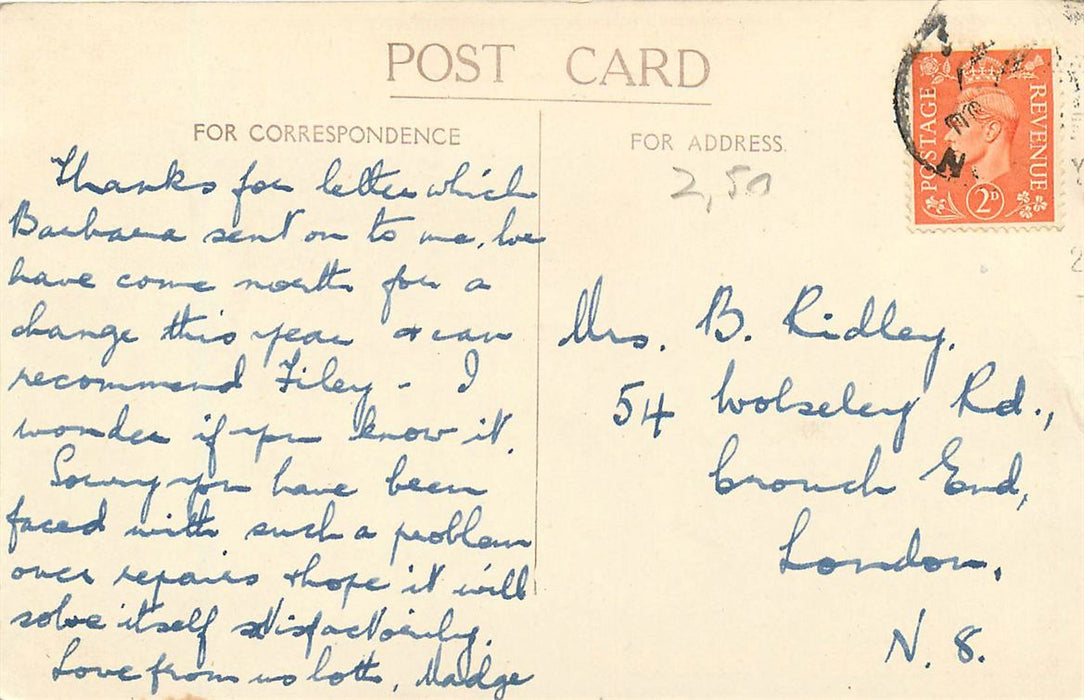 POST CARD
FOR CORRESPONDENCE
Thanks for letter which
Barbara sent on to me. We
have come north for a
change this year & can
recommend Filey - I
wonder if you know it.
Sorry you have been
faced with such a problem
over repairs & hope it will
solve itself satisfactorily.
Love from us both, Madge
FOR ADDRESS.
2,50
POSTAGE REVENUE
2D
Mrs. B. Ridley,
54 Wolseley Rd.,
Crouch End,
London,
N. 8.